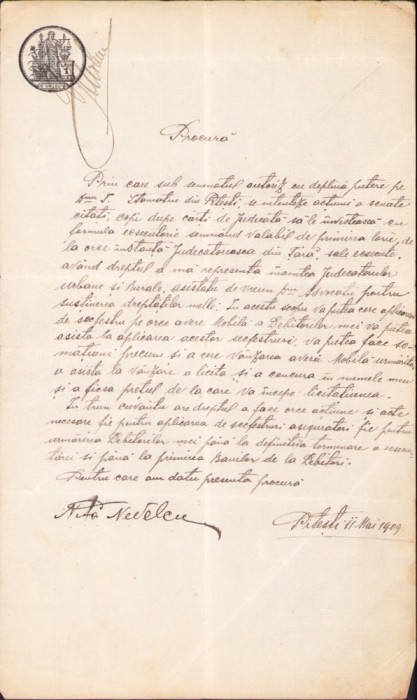 Procură
Prin care sub semnatul autoriz cu deplină putere pe
Dmn T. Stomatiu din Pitesti, se intenteze actiuni a senate
citati, copii dupe cărti de Judecată să-le învesteasca cu
formula executorie semnând valabil de primirea lorie, de
la orce instantă Judecatoreasca din Tară, sale execute,
având dreptul a mă represinta înaintea Judecatoriilor
urbane si Rurale, asistate de vreun Dmn Advocatu pentru
sustinerea drepturilor melle; In acestu scopu va putea cere aplicarea
de secfestru pe orce avere Mobilă a Debitorilor mei va putea
asista la aplicarea acestor secfestruri, va putea face so-
matiuni precum si a cere vânzarea averei Mobilă urmărite
a asista la vânzare a licita si a concura în numele meu
si a ficsa pretul de la care va începe licitatiunea.
In trun cuvântu are dreptul a face orce actiune si acte
necesare fie pentru aplicarea de secfesturi asiguratori fie pentru
urmărirea Debitorilor mei până la definitiva terminare a execu-
tărei si până la primirea Banilor de la Debitori.
Pentru care am datu presenta procură
Nită Nedelcu
Pitesti 11 Mai 1909